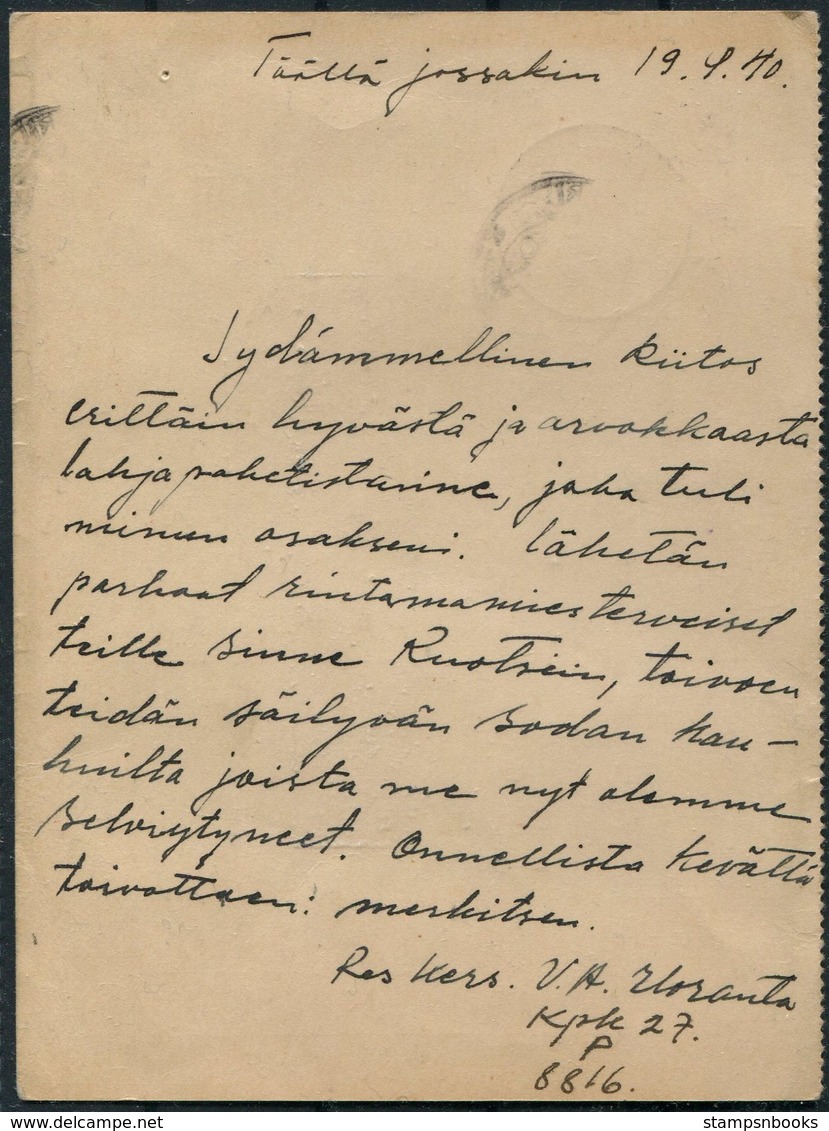 Täällä jossakin 19.4.40.
Sydämmellinen kiitos
erittäin hyvästä ja arvokkaasta
lahjapaketistanne, joka tuli
minun osakseni. Lähetän
parhaat rintamamiesterveiset
teille sinne Ruotsiin, toivoen
teidän säilyvän sodan kau-
huilta joista me nyt olemme
selviytyneet. Onnellista kevättä
toivottaen: merkitsen.
Res kers. V.A. Yloranta
Kpk 27.
P
8816.
HipPostcard.com
stampsnbooks